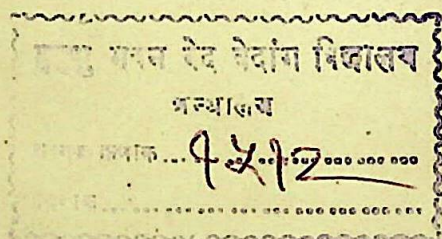 मुमुक्षु भवन वेद वेदांग विद्यालय
ग्रन्थालय
क्रमाक...१५१२............
................................